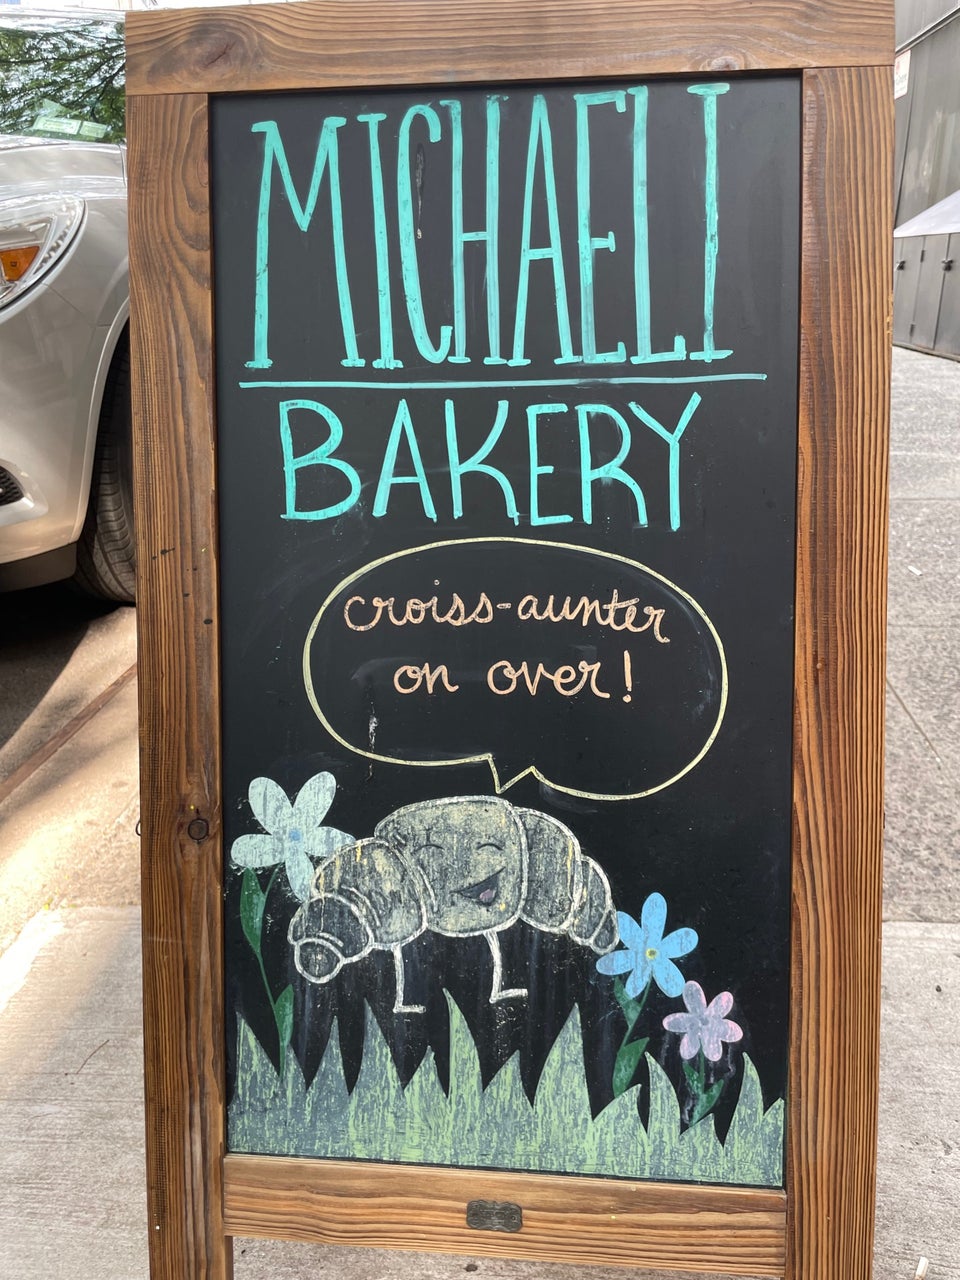 MICHAELI
BAKERY
croiss-aunter
on over!